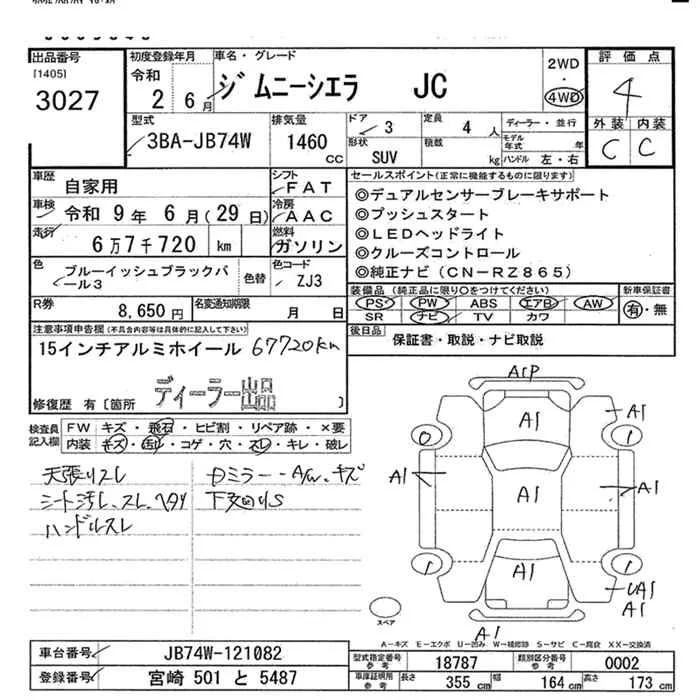 出品番号 初度登録年月 車名・グレード 評価点
[1405] 3027 令和 2 6月 ジムニーシエラ JC 2WD・4WD 4
型式 排気量 ドア 定員 ディーラー・並行 外装 内装
3BA-JB74W 1460 CC 3 4 人 モデル年式 年 C C
形状 SUV 積載 kg ハンドル 左・右
車歴 自家用 シフト FAT セールスポイント(正常に機能するものに限ります)
車検 令和 9年 6月(29日) 冷房 AAC ◎デュアルセンサーブレーキサポート
◎プッシュスタート
走行 6万7千720 km 燃料 ガソリン ◎LEDヘッドライト
◎クルーズコントロール
色 ブルーイッシュブラックパール3 色替 色コード ZJ3 ◎純正ナビ(CN-RZ865)
装備品 (純正品に限り○をつけてください) 新車保証書
R券 8,650円 名変通知期限 月 日 PS PW ABS エアB AW 有・無
SR ナビ TV カワ
注意事項申告欄(不具合内容等は具体的に記入して下さい) 後日品 保証書・取説・ナビ取説
15インチアルミホイール 67720km
ディーラー出品
修復歴 有〔箇所 〕
検査員記入欄 FW キズ・飛石・ヒビ割・リペア跡・×要
内装 キズ・汚レ・コゲ・穴・スレ・キレ・破レ
天張りスレ
シート汚レ、スレ、ヘタリ
ハンドルスレ
ミラー・A/W、キズ
A1P
A1 A1
0 1
A1 A1 A1
1 A1 1
UA1
A1
スペア
A1
A-キズ E-エクボ U-凹み W-補修跡 S-サビ C-腐食 XX-交換済
車台番号 JB74W-121082 型式指定番号 参考 18787 類別区分番号 参考 0002
登録番号 宮崎 501 と 5487 車庫証明用 参考 長さ 355 cm 幅 164 cm 高さ 173 cm